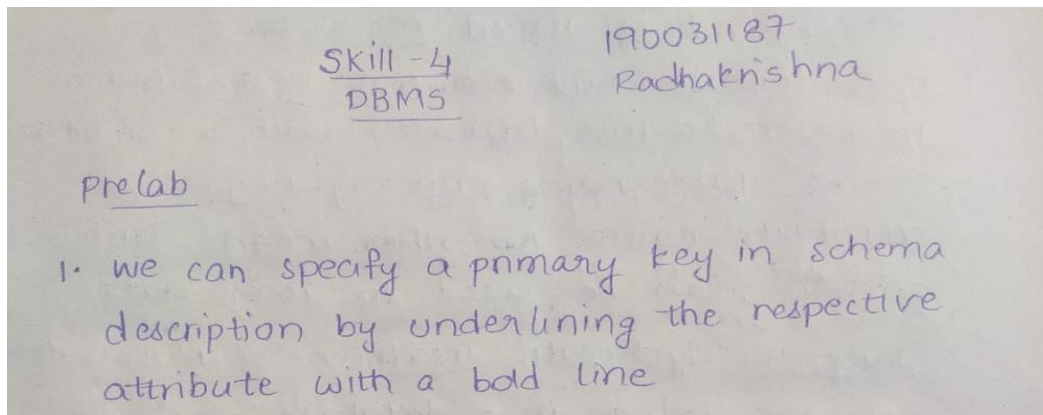 Skill - 4
DBMS
190031187
Radhakrishna
Prelab
1. we can specify a primary key in schema
description by underlining the respective
attribute with a bold line